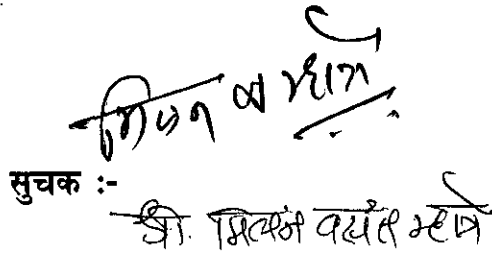 म्हात्रे
सुचक :-
श्री. मिलन वसंत म्हात्रे